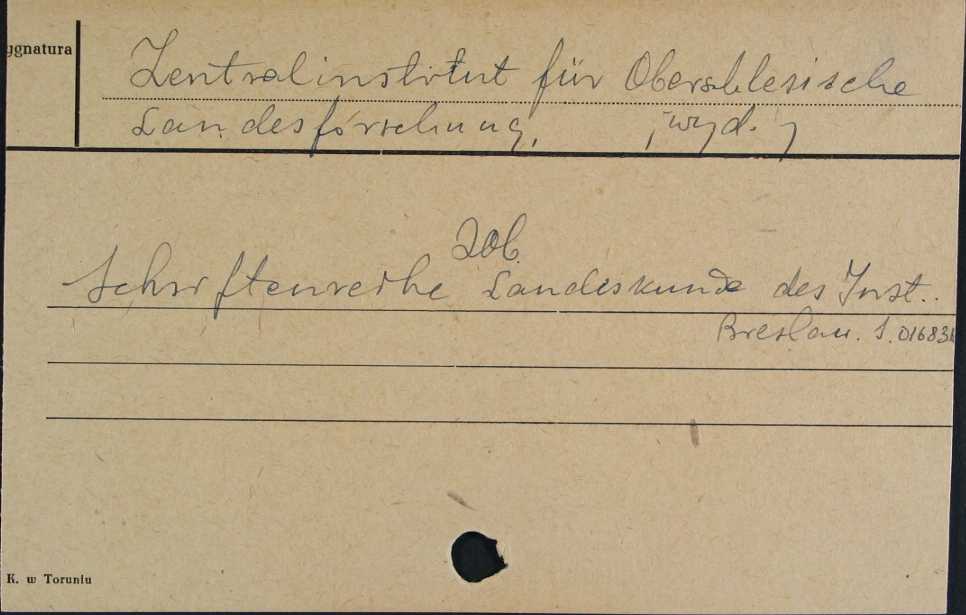 ygnatura
Zentralinstitut für Oberschlesische
Landesforschung, /wyd./
Zob.
Schriftenreihe Landeskunde des Inst..
Breslau. S. 01683
K. w Toruniu